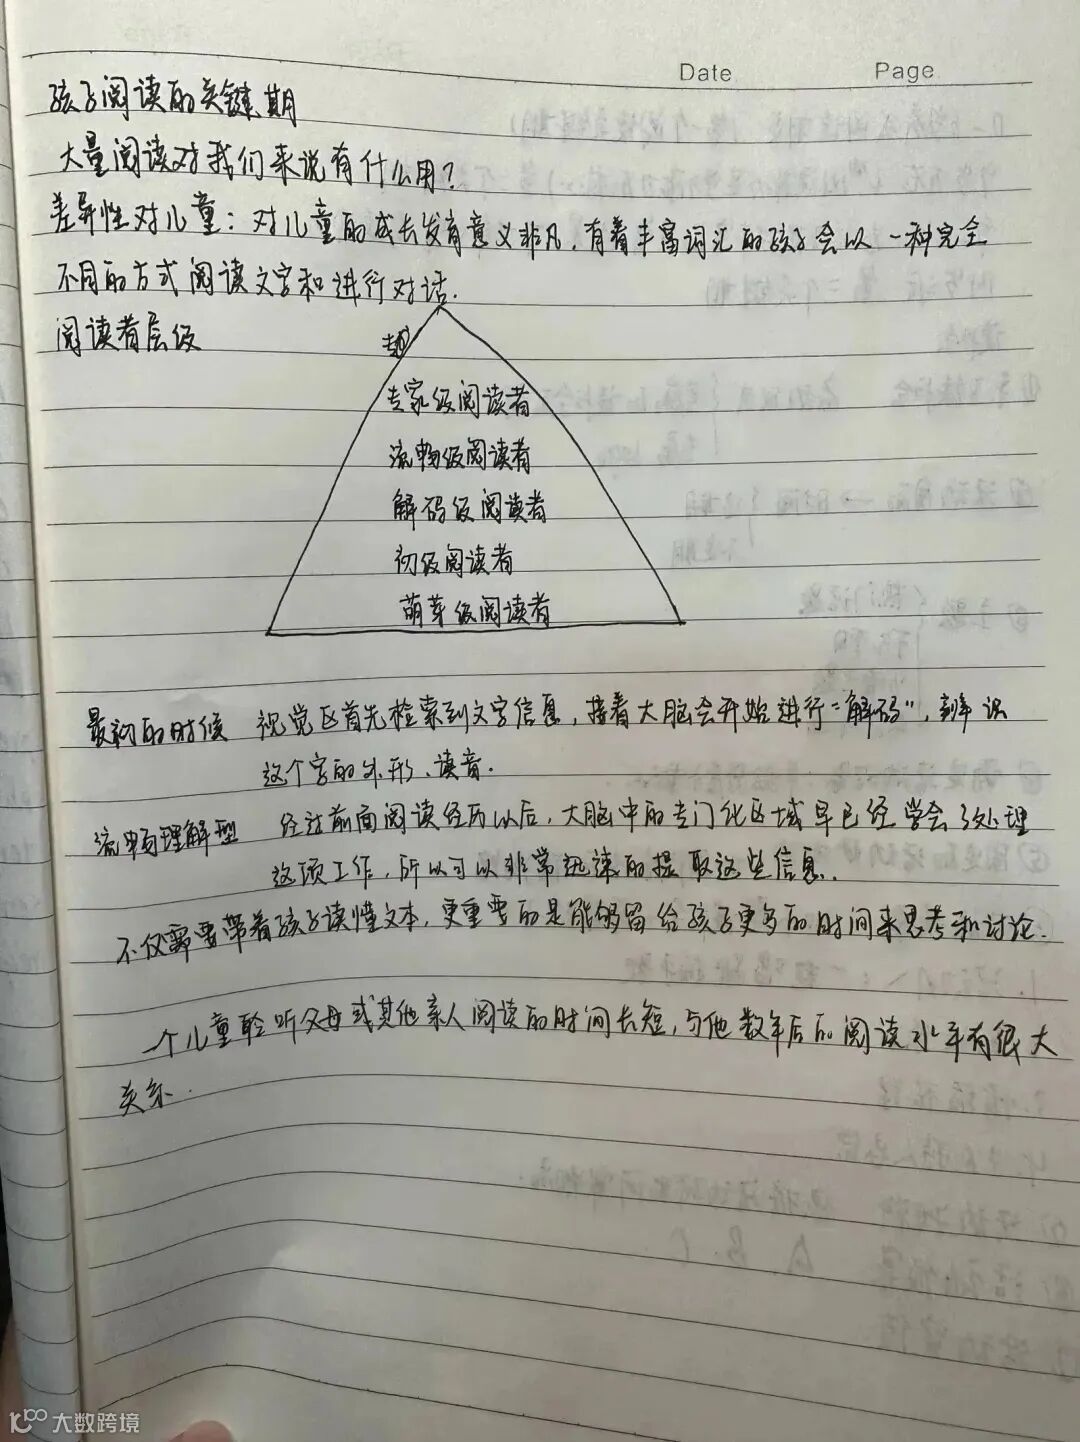 Date Page
孩子阅读的关键期
大量阅读对我们来说有什么用？
差异性对儿童：对儿童的成长发育意义非凡，有着丰富词汇的孩子会以一种完全
不同的方式阅读文字和进行对话.
阅读者层级
专家级阅读者
流畅级阅读者
解码级阅读者
初级阅读者
萌芽级阅读者
最初的时候 视觉区首先检索到文字信息，接着大脑会开始进行“解码”，辨识
这个字的外形、读音.
流畅理解型 经过前面阅读经历以后，大脑中的专门化区域早已经学会了处理
这项工作，所以可以非常迅速的提取这些信息.
不仅需要带着孩子读懂文本，更重要的是能够留给孩子更多的时间来思考和讨论.
一个儿童聆听父母或其他亲人阅读的时间长短，与他数年后的阅读水平有很大
关系.
大数跨境